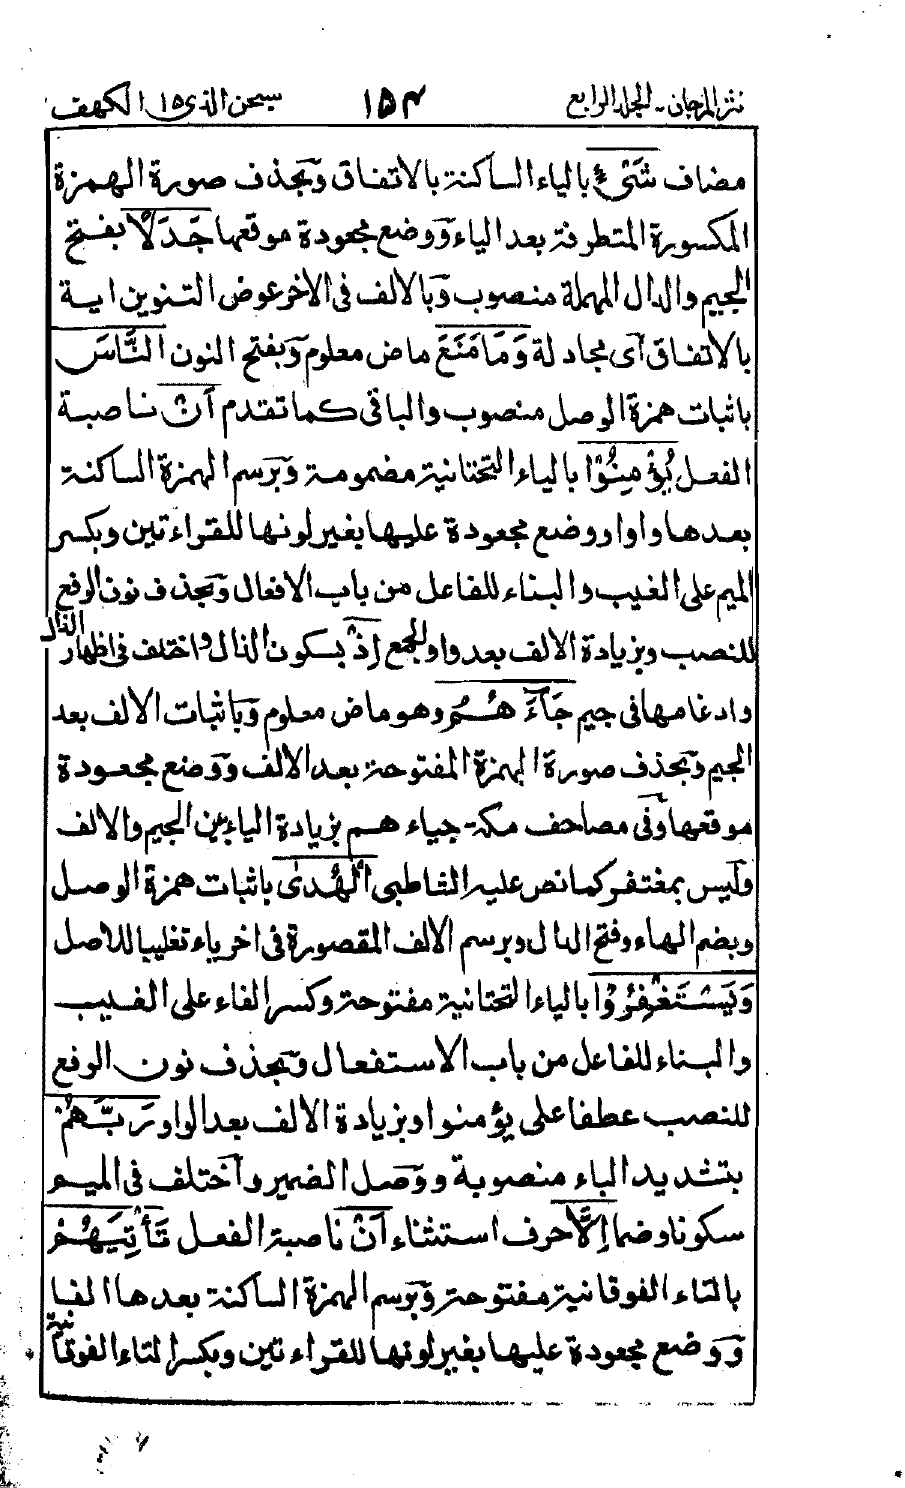 نثر المرجان - المجلد الرابع ١٥٤ سبحن الذی ١٥ الکهف
مضاف شَیْءٍ بالیاء الساکنة بالاتفاق وبحذف صورة الهمزة
المکسورة المتطرفة بعد الیاء ووضع مجعودة موقعها جَدَلًا بفتح
الجیم والدال المهملة منصوب وبالالف فی الاخر عوض التنوین ایة
بالاتفاق ای مجادلة وَمَا مَنَعَ ماض معلوم وبفتح النون النَّاسَ
باثبات همزة الوصل منصوب والباقی کما تقدم اَنْ ناصبة
الفعل یُؤْمِنُوْا بالیاء التحتانیة مضمومة وبرسم الهمزة الساکنة
بعدها واوا ووضع مجعودة علیها بغیر لونها للقراءتین وبکسر
المیم علی الغیب والبناء للفاعل من باب الافعال وبحذف نون الرفع
للنصب وبزیادة الالف بعد واو الجمع اِذْ بسکون الذال واختلف فی اظهار الذال
وادغامها فی جیم جَآءَ هُمُ وهو ماض معلوم وباثبات الالف بعد
الجیم وبحذف صورة الهمزة المفتوحة بعد الالف ووضع مجعودة
موقعها وفی مصاحف مکة جیاء هم بزیادة الیاء بین الجیم والالف
ولیس بمغتفر کما نص علیه الشاطبی الْهُدٰی باثبات همزة الوصل
وبضم الهاء وفتح الدال وبرسم الالف المقصورة فی اخر یاء تغلیبا للاصل
وَیَسْتَغْفِرُوْا بالیاء التحتانیة مفتوحة وکسر الفاء علی الغیب
والبناء للفاعل من باب الاستفعال وبحذف نون الرفع
للنصب عطفا علی یؤمنوا وبزیادة الالف بعد الواو رَبَّهُمْ
بتشدید الباء منصوبة ووصل الضمیر واختلف فی المیم
سکونا وضما اِلَّا حرف استثناء اَنْ ناصبة الفعل تَأْتِیَهُمْ
بالتاء الفوقانیة مفتوحة وبرسم الهمزة الساکنة بعدها الفا
ووضع مجعودة علیها بغیر لونها للقراءتین وبکسر التاء الفوقانیة